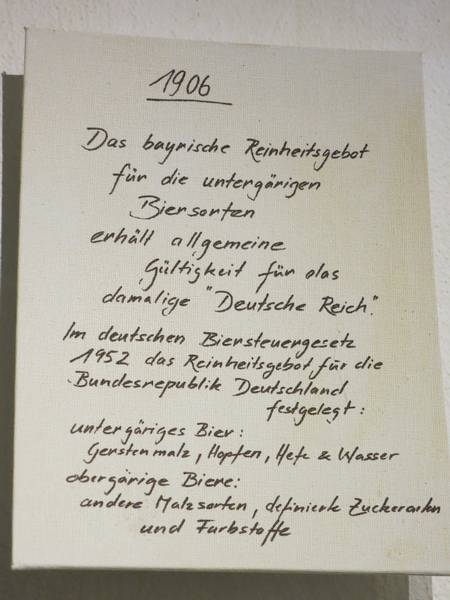 1906
Das bayrische Reinheitsgebot
für die untergärigen
Biersorten
erhält allgemeine
Gültigkeit für das
damalige "Deutsche Reich".
Im deutschen Biersteuergesetz
1952 das Reinheitsgebot für die
Bundesrepublik Deutschland
festgelegt:
untergäriges Bier:
Gerstenmalz, Hopfen, Hefe & Wasser
obergärige Biere:
andere Malzsorten, definierte Zuckerarten
und Farbstoffe